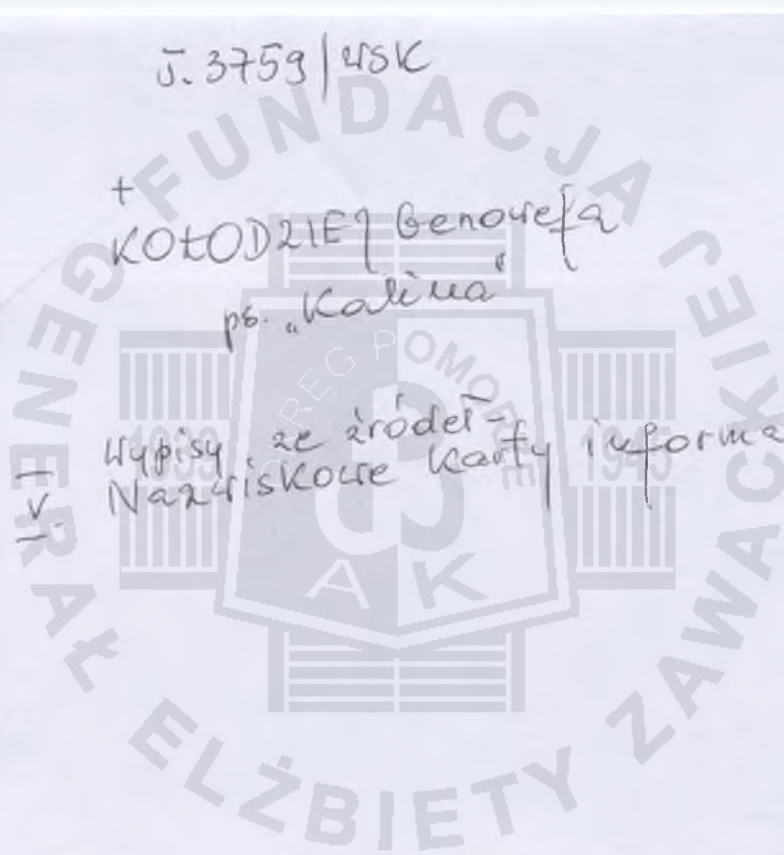 J. 3759/WSK
+
KOŁODZIEJ Genowefa
ps. „Kalina"
IV. Wypisy ze źródeł -
Nazwiskowe karty informa
FUNDACJA
GENERAŁ ELŻBIETY ZAWACKIEJ
OKRĘG POMORZE
1939 1945
AK